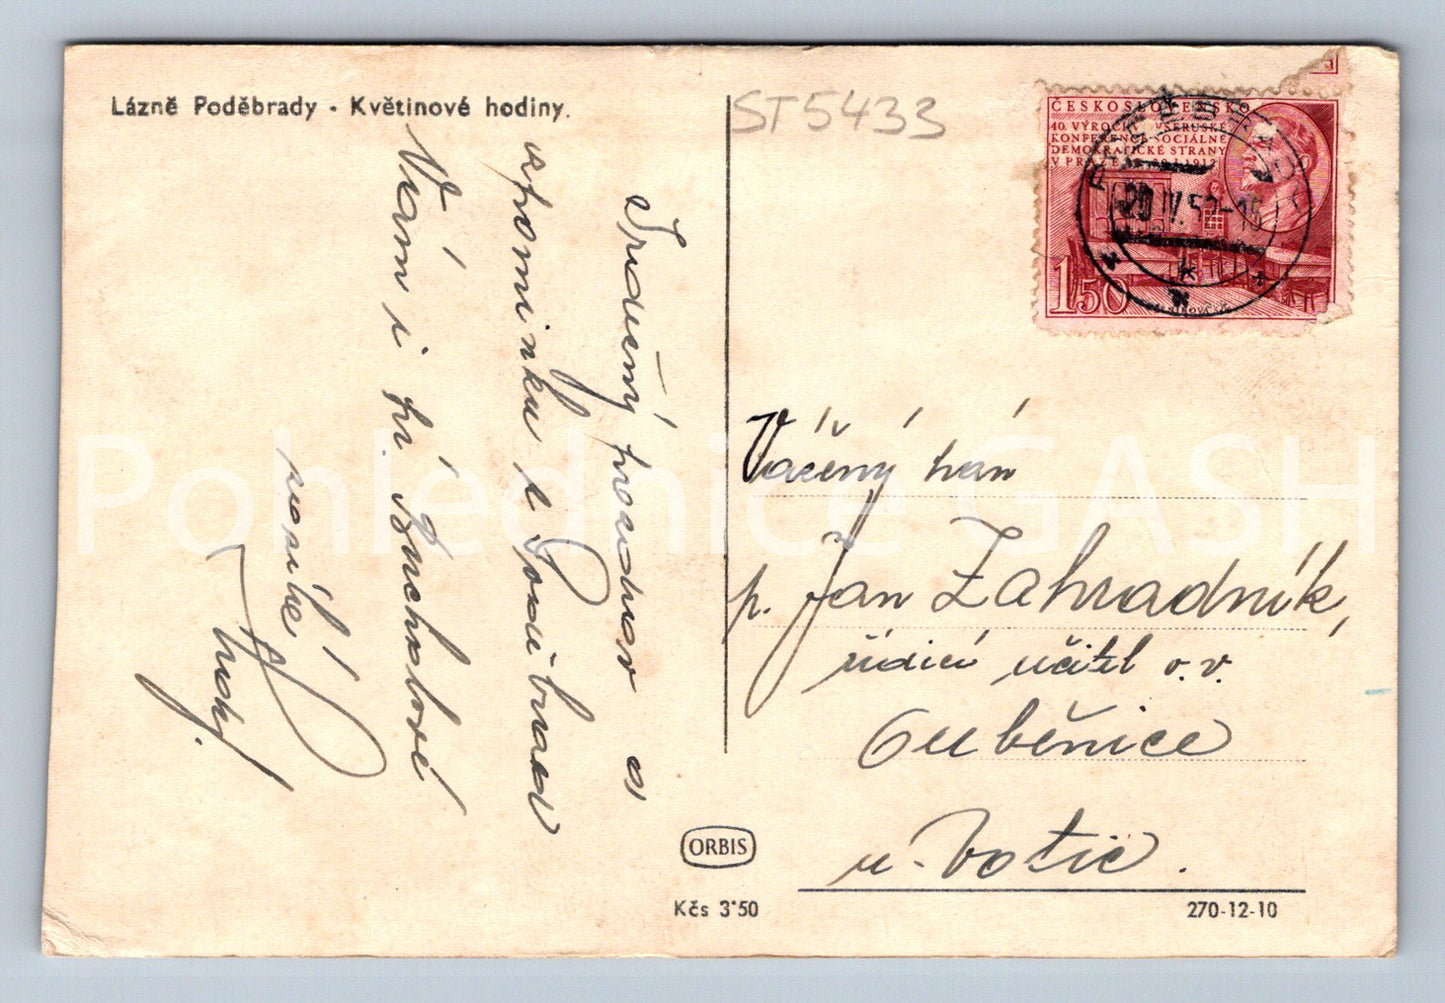 Lázně Poděbrady - Květinové hodiny.
ST5433
ČESKOSLOVENSKO
40. VÝROČÍ VŠERUSKÉ
KONFERENCE SOCIÁLNĚ
DEMOKRATICKÉ STRANY
V PRAZE 1912
20.IV.52-15
1,50
Srdečný pozdrav a
vzpomínku z Poděbrad
Vám i p.
Vážený pán
p. Jan Zahradník,
řídící učitel v.v.
Ouběnice
u Votic.
ORBIS
Kčs 3'50
270-12-10
Pohlednice GASH